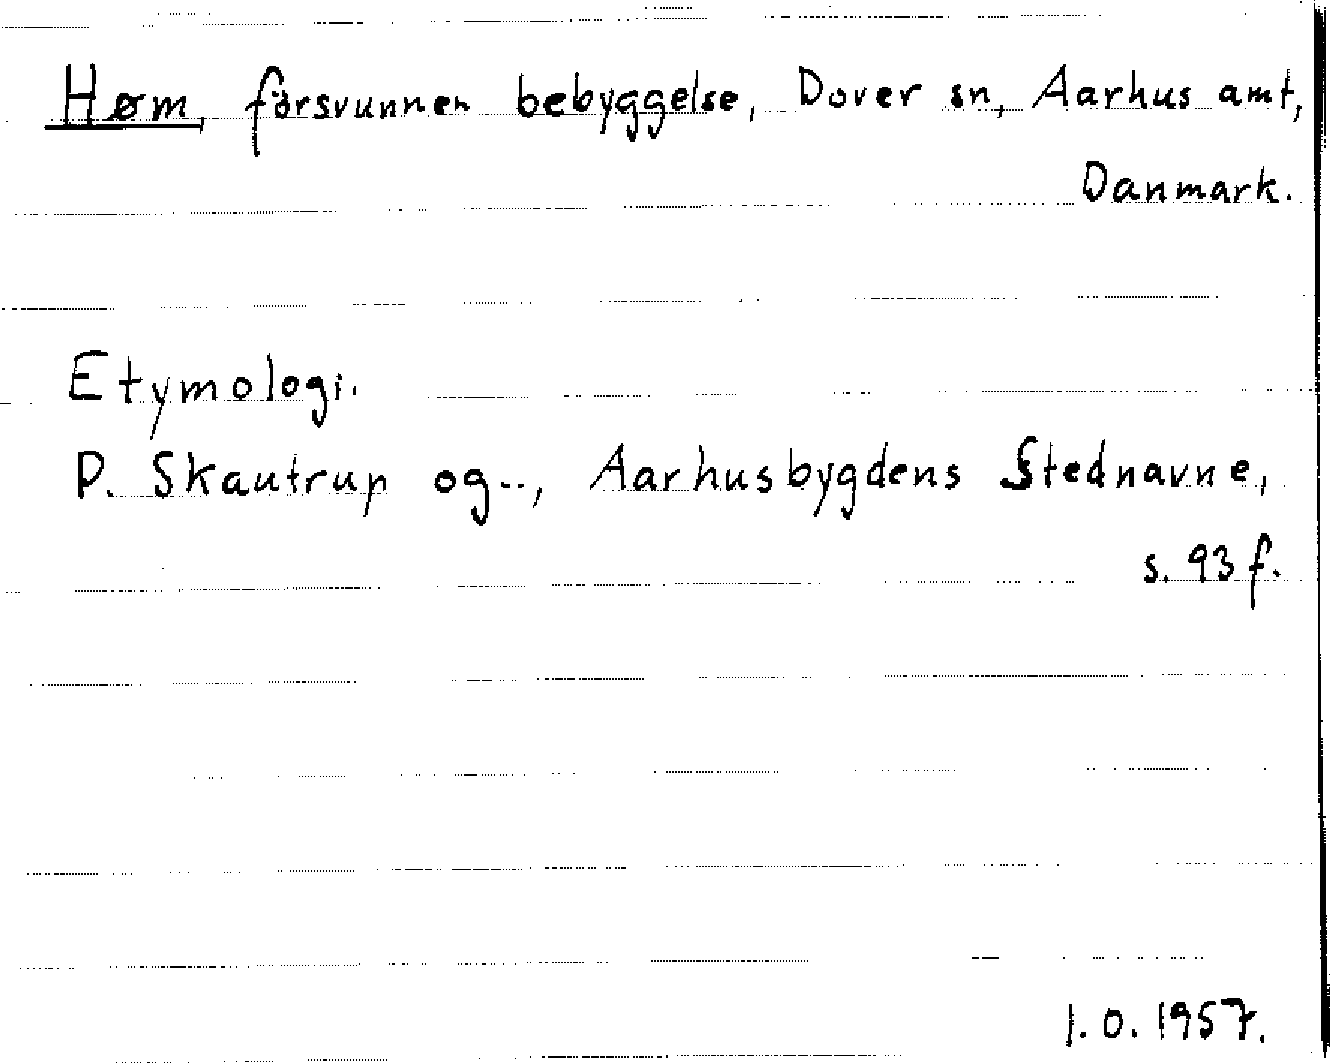 Høm, försvunnen bebyggelse, Dover sn, Aarhus amt,
Danmark.
Etymologi.
P. Skautrup og--, Aarhusbygdens Stednavne,
s. 93 f.
I.O. 1957.